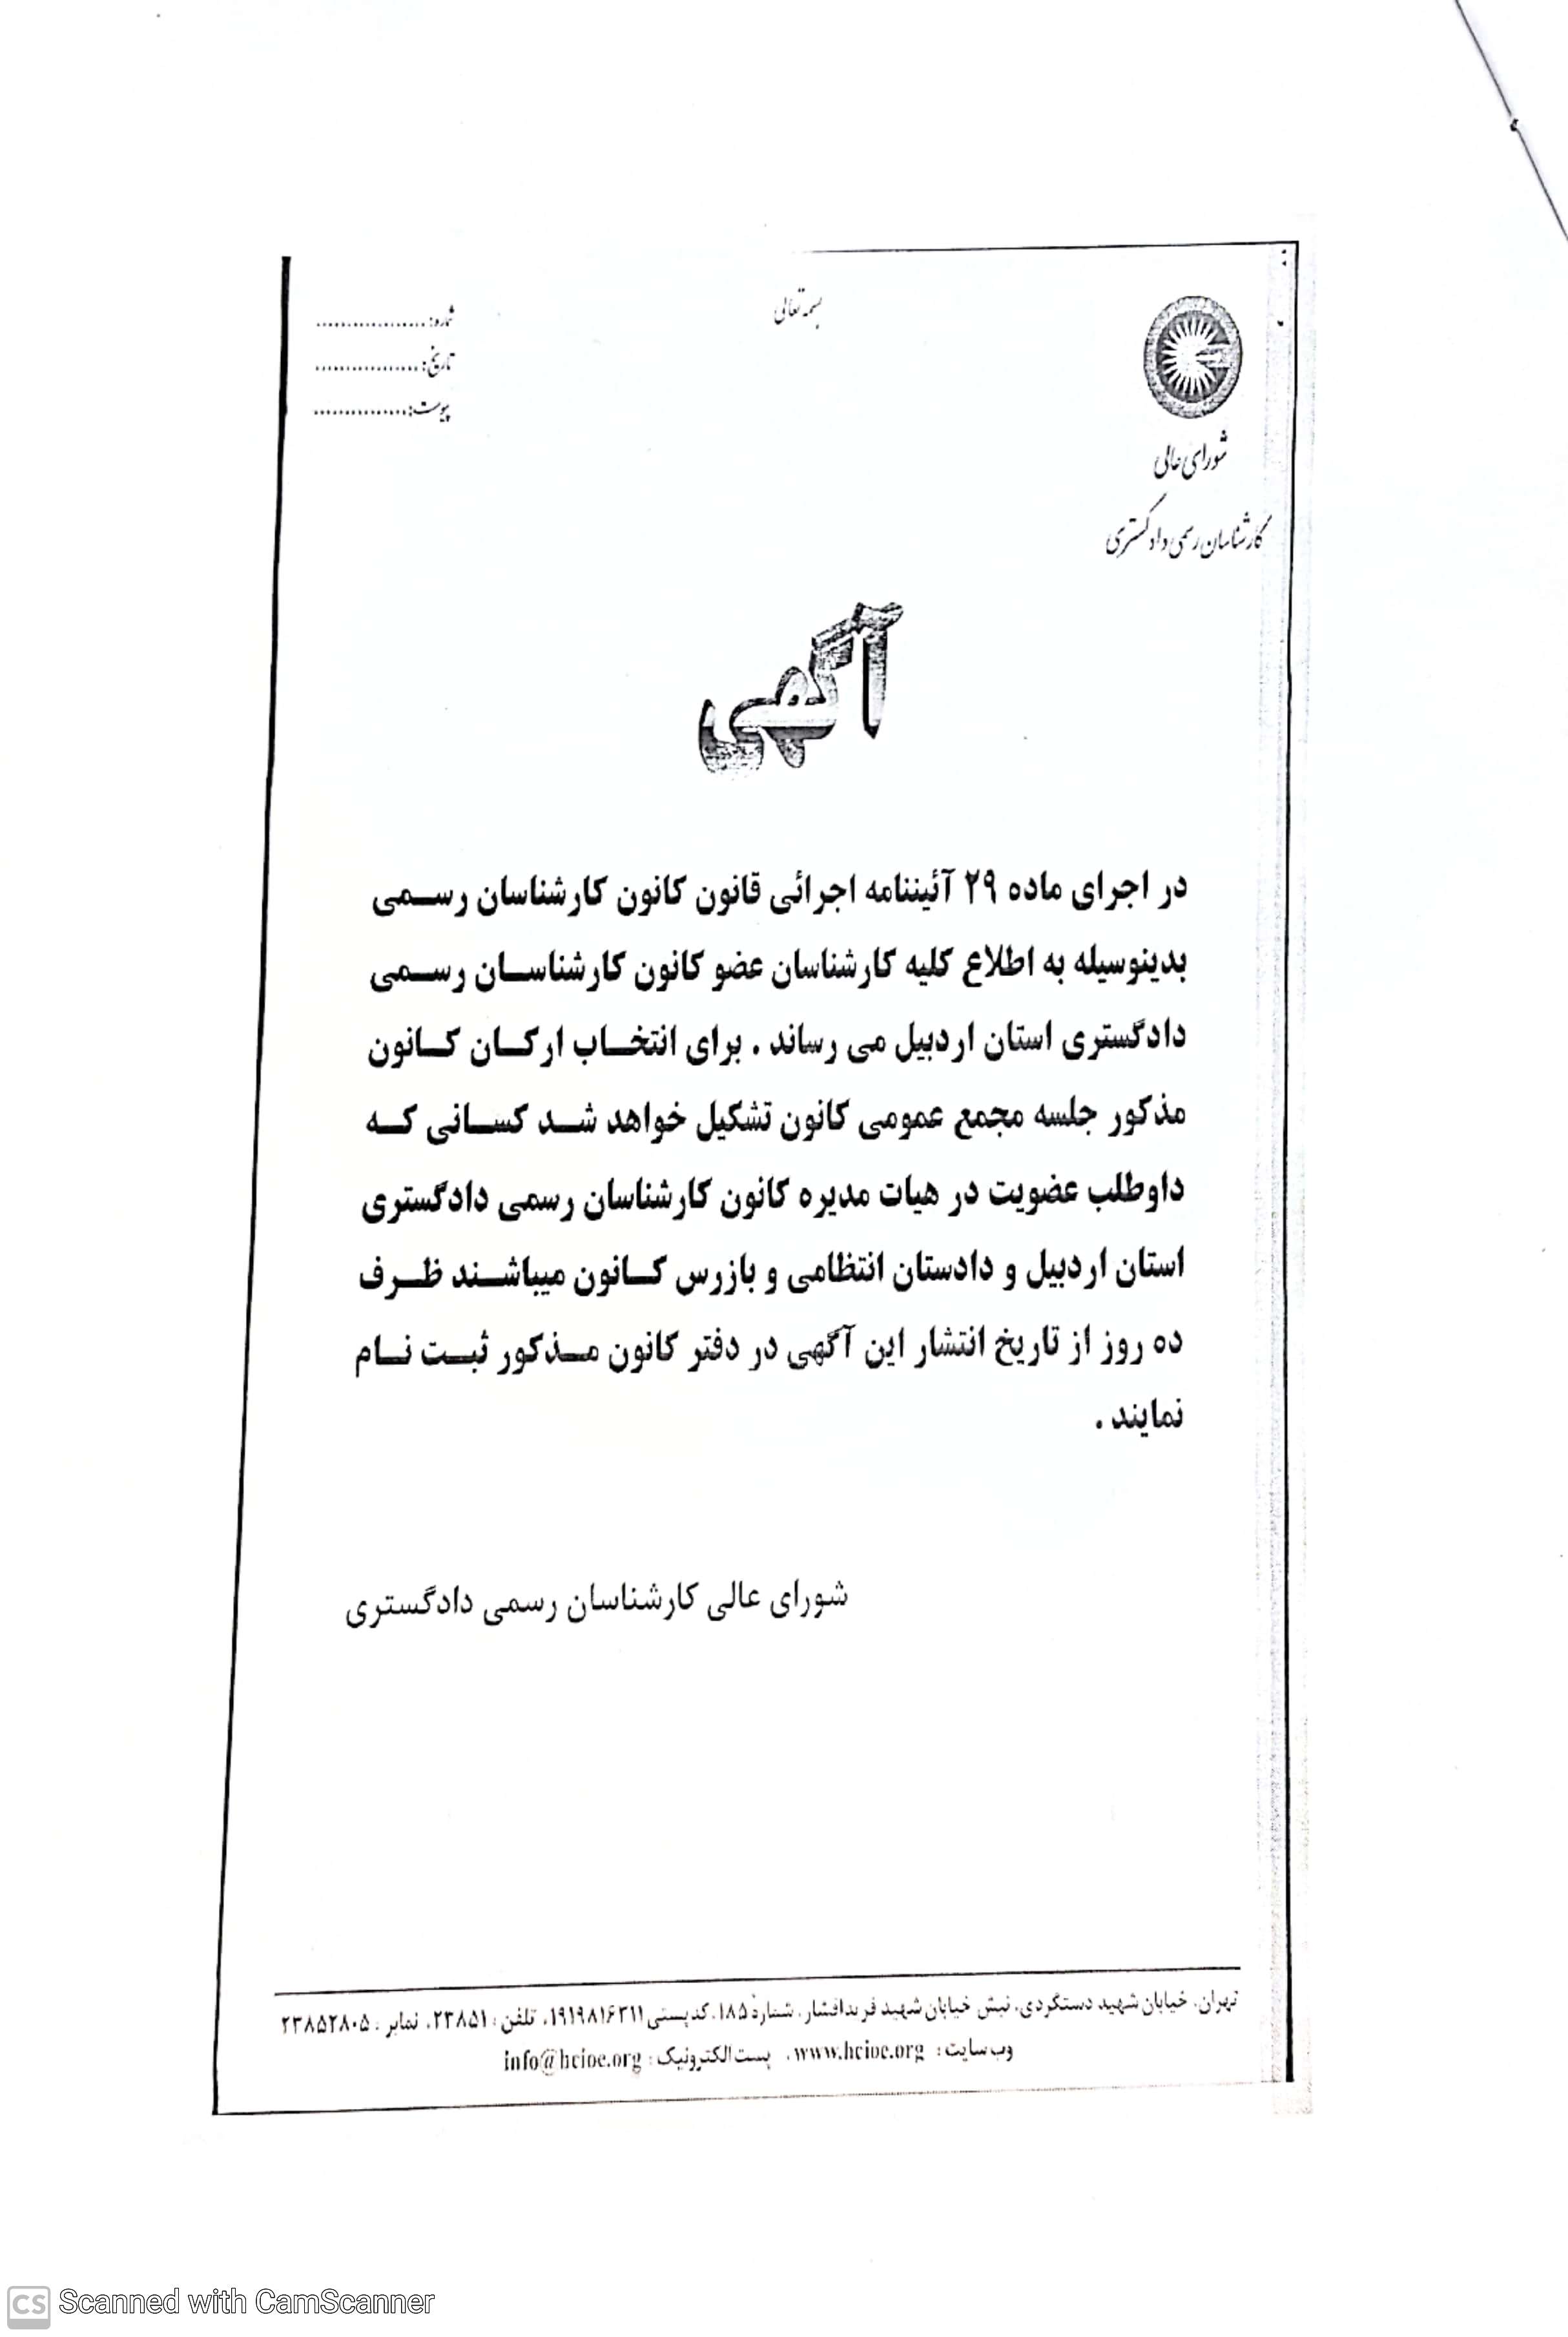 بسمه تعالی
شماره: ..................
تاریخ: .................
پیوست: ................
شورای عالی
کارشناسان رسمی دادگستری
آگهی
در اجرای ماده ۲۹ آئیننامه اجرائی قانون کانون کارشناسان رسمی
بدینوسیله به اطلاع کلیه کارشناسان عضو کانون کارشناسان رسمی
دادگستری استان اردبیل می رساند . برای انتخاب ارکان کانون
مذکور جلسه مجمع عمومی کانون تشکیل خواهد شد کسانی که
داوطلب عضویت در هیات مدیره کانون کارشناسان رسمی دادگستری
استان اردبیل و دادستان انتظامی و بازرس کانون میباشند ظرف
ده روز از تاریخ انتشار این آگهی در دفتر کانون مذکور ثبت نام
نمایند .
شورای عالی کارشناسان رسمی دادگستری
تهران، خیابان شهید دستگردی، نبش خیابان شهید فرید افشار، شمارهٔ ۱۸۵، کدپستی ۱۹۱۹۸۱۶۳۱۱، تلفن: ۲۳۸۵۱، نمابر: ۲۳۸۵۲۸۰۵
وب سایت: www.hcioe.org، پست الکترونیک: info@hcioe.org
CS Scanned with CamScanner